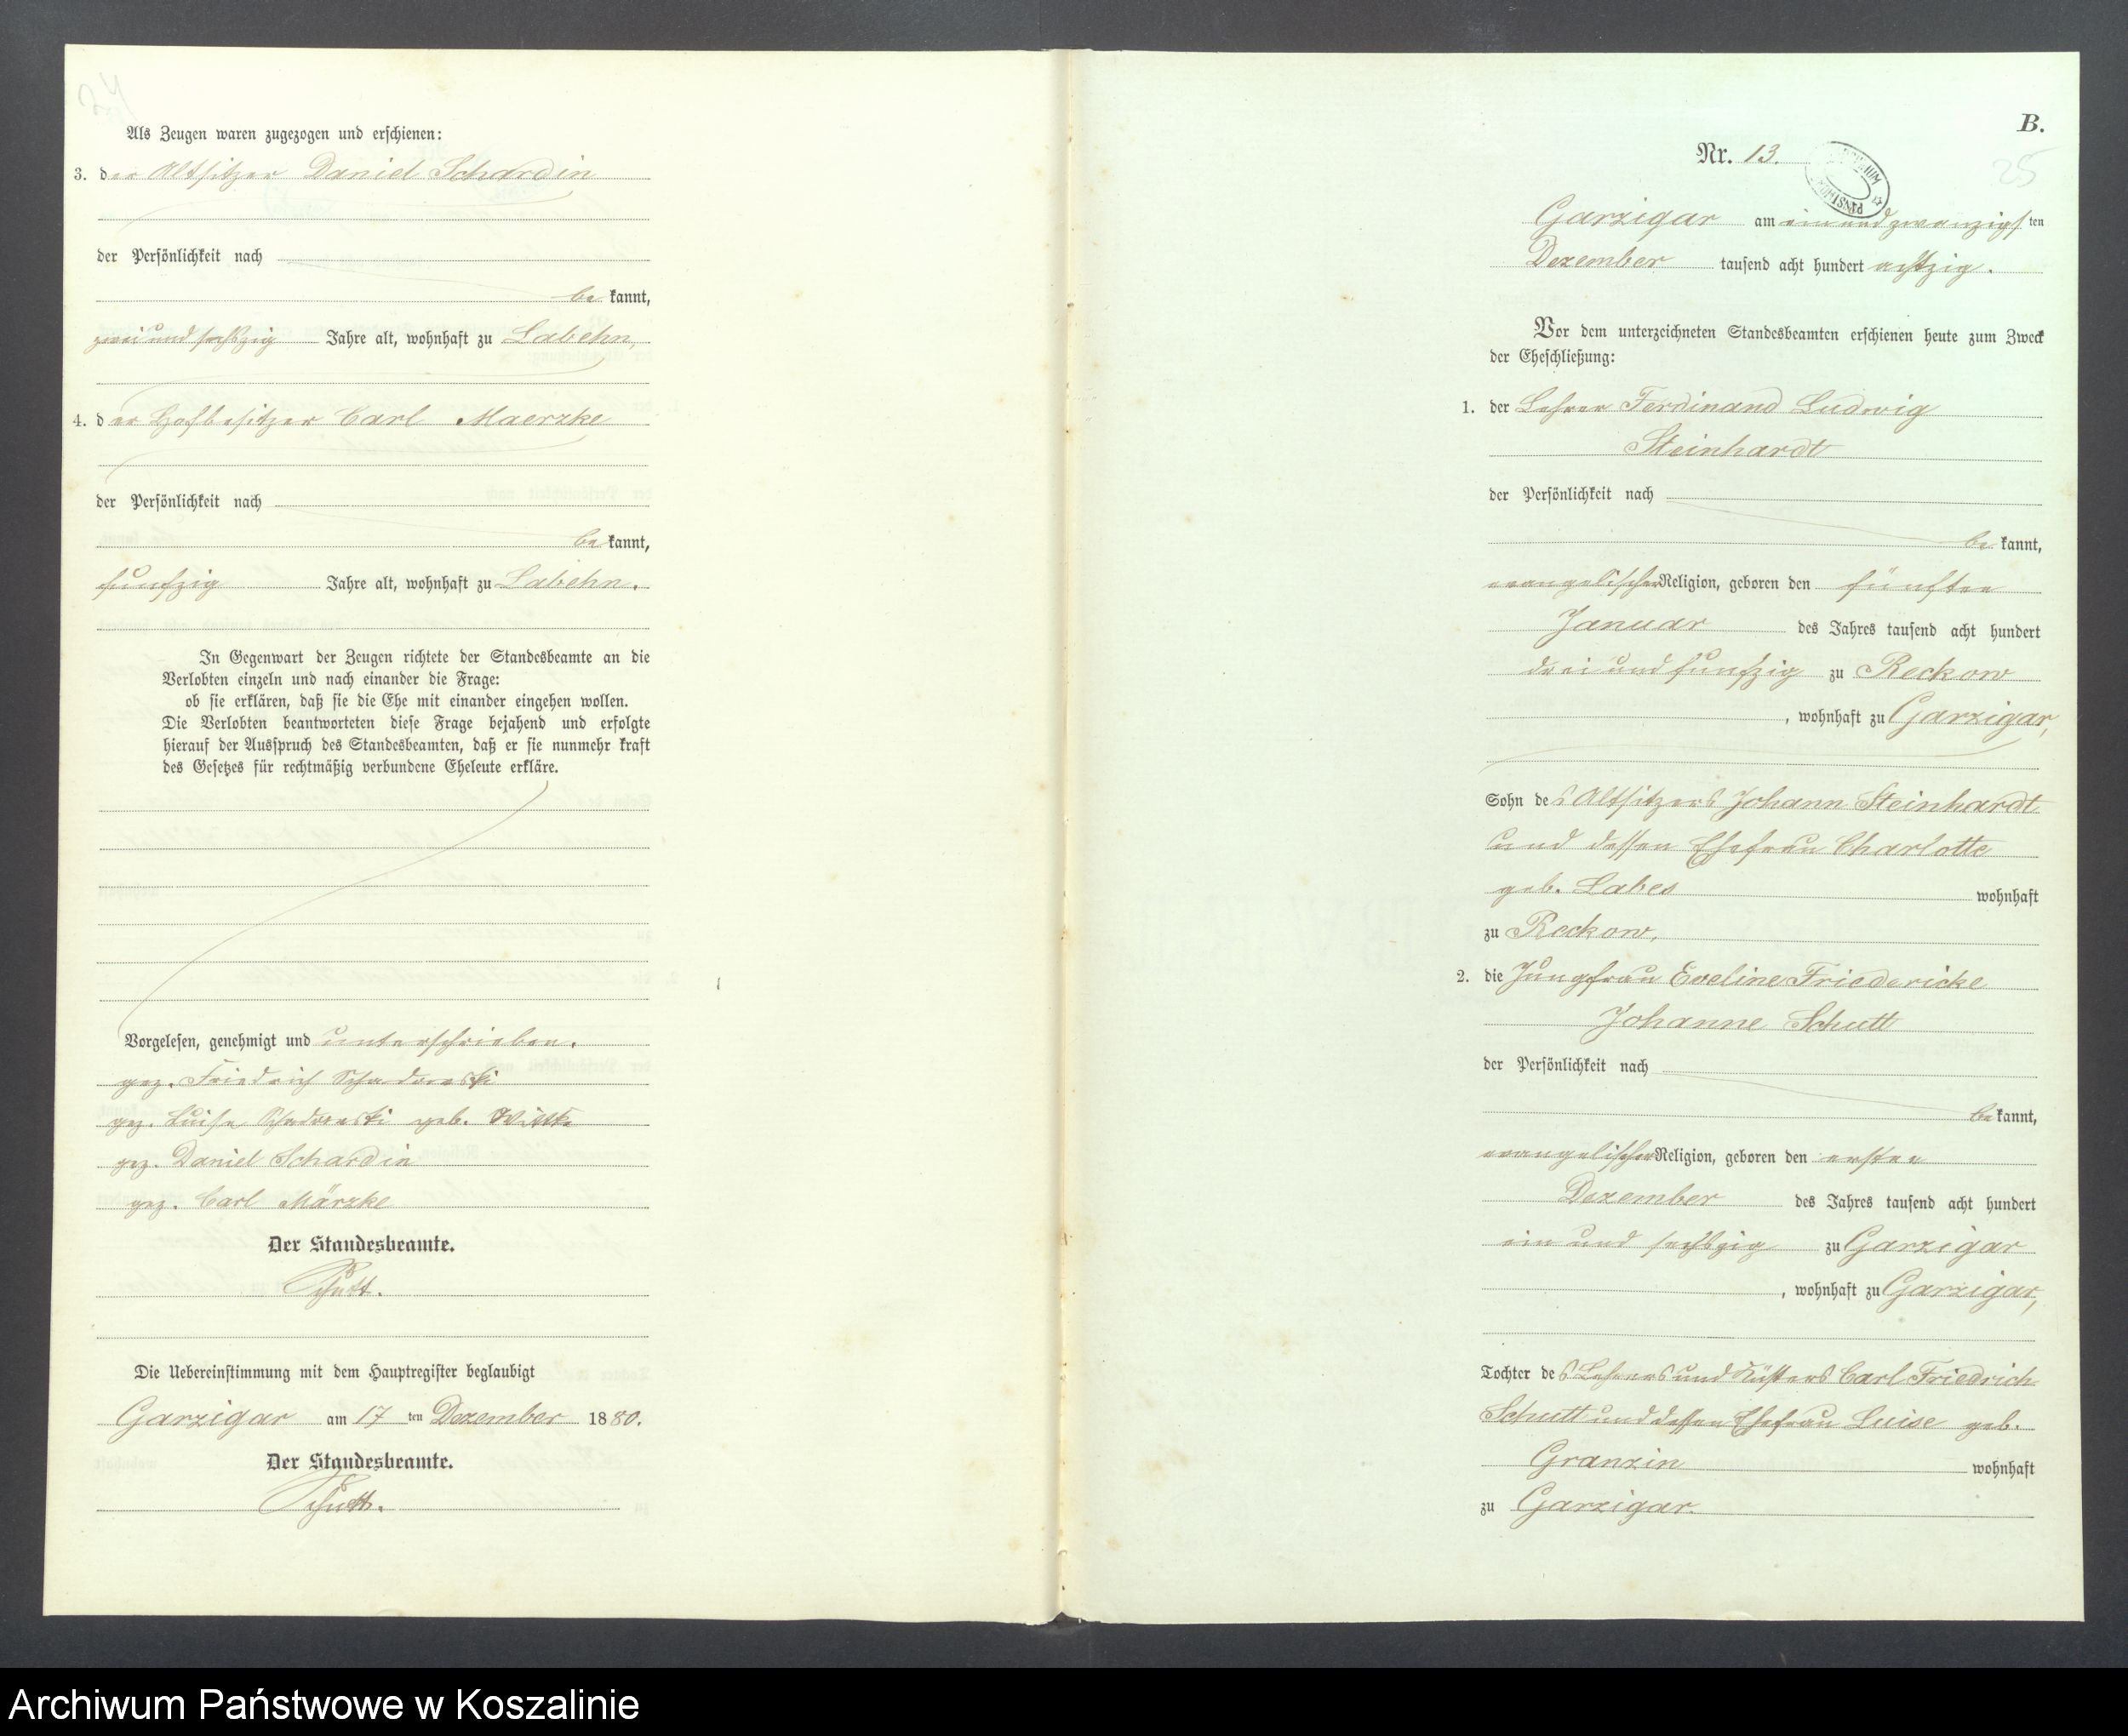 24
Als Zeugen waren zugezogen und erschienen:
3. der Altsitzer Daniel Schardin
der Persönlichkeit nach
bekannt,
zwei und sechszig Jahre alt, wohnhaft zu Labehn,
4. der Hofbesitzer Carl Maerzke
der Persönlichkeit nach
bekannt,
funfzig Jahre alt, wohnhaft zu Labehn.
In Gegenwart der Zeugen richtete der Standesbeamte an die
Verlobten einzeln und nach einander die Frage:
ob sie erklären, daß sie die Ehe mit einander eingehen wollen.
Die Verlobten beantworteten diese Frage bejahend und erfolgte
hierauf der Ausspruch des Standesbeamten, daß er sie nunmehr kraft
des Gesetzes für rechtmäßig verbundene Eheleute erkläre.
Vorgelesen, genehmigt und unterschrieben.
gez. Friedrich
gez. Luise geb.
gez. Daniel Schardin
gez. Carl Märzke
Der Standesbeamte.
Schutt.
Die Uebereinstimmung mit dem Hauptregister beglaubigt
Garzigar am 17 ten Dezember 1880.
Der Standesbeamte.
Schutt.
B.
25
Nr. 13.
Garzigar am einundzwanzigsten
Dezember tausend acht hundert achtzig.
Vor dem unterzeichneten Standesbeamten erschienen heute zum Zweck
der Eheschließung:
1. der Lehrer Ferdinand Ludwig
Steinhardt
der Persönlichkeit nach
bekannt,
evangelischer Religion, geboren den fünften
Januar des Jahres tausend acht hundert
drei und funfzig zu Reckow
, wohnhaft zu Garzigar,
Sohn des Altsitzers Johann Steinhardt
und dessen Ehefrau Charlotte
geb. wohnhaft
zu Reckow,
2. die Jungfrau Eveline Friedericke
Johanne Schutt
der Persönlichkeit nach
bekannt,
evangelischer Religion, geboren den ersten
Dezember des Jahres tausend acht hundert
ein und sechszig zu Garzigar
, wohnhaft zu Garzigar,
Tochter des Lehrers und Küsters Carl Friedrich
Schutt und dessen Ehefrau Luise geb.
Granzin wohnhaft
zu Garzigar.
Archiwum Państwowe w Koszalinie